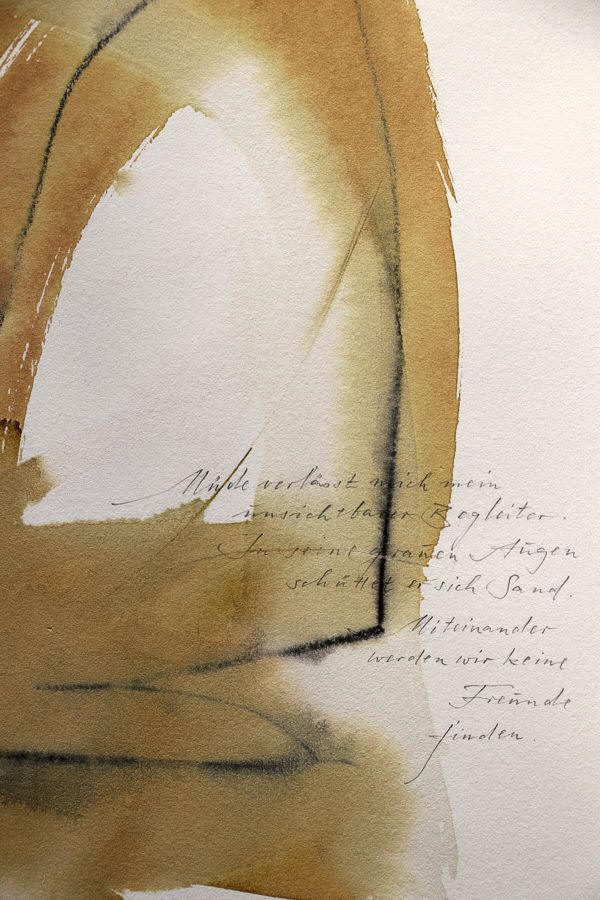 Müde verlässt mich mein
unsichtbarer Begleiter.
In seine grauen Augen
schüttet er sich Sand.
Miteinander
werden wir keine
Freunde
finden.